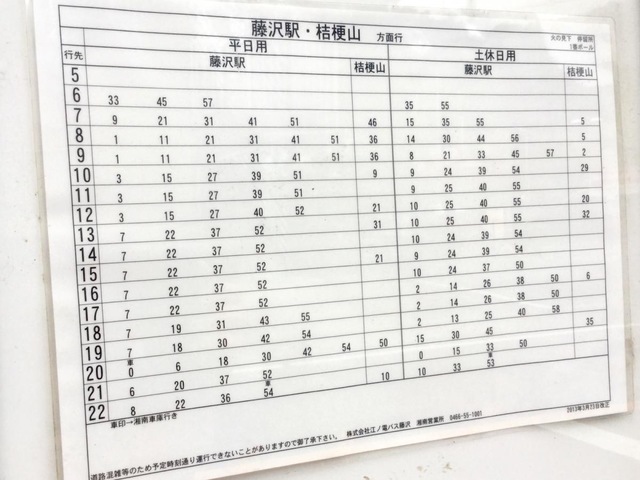 藤沢駅・桔梗山 方面行
火の見下 停留所
1番ポール
行先 平日用 土休日用
藤沢駅 桔梗山 藤沢駅 桔梗山
5
6 33 45 57 35 55
7 9 21 31 41 51 46 15 35 55 5
8 1 11 21 31 41 51 36 14 30 44 56 5
9 1 11 21 31 41 51 36 8 21 33 45 57 2
10 3 15 27 39 51 9 9 24 39 54 29
11 3 15 27 39 51 9 25 40 55
12 3 15 27 40 52 21 10 25 40 55 20
13 7 22 37 52 31 10 25 40 55 32
14 7 22 37 52 10 24 39 54
15 7 22 37 52 21 9 24 39 54
16 7 22 37 52 10 24 37 50
17 7 22 37 52 2 14 26 38 50 6
18 7 19 31 43 55 2 14 26 38 50
19 7 18 30 42 54 2 13 25 40 58
車
20 0 6 18 30 42 54 50 15 30 45 35
21 6 20 37 52 0 15 33 50
車 車
22 8 22 36 54 10 10 33 53
車印→湘南車庫行き
2013年3月25日改正
道路混雑等のため予定時刻通り運行できないことがありますので御了承下さい。 株式会社江ノ電バス藤沢 湘南営業所 0466-55-1001